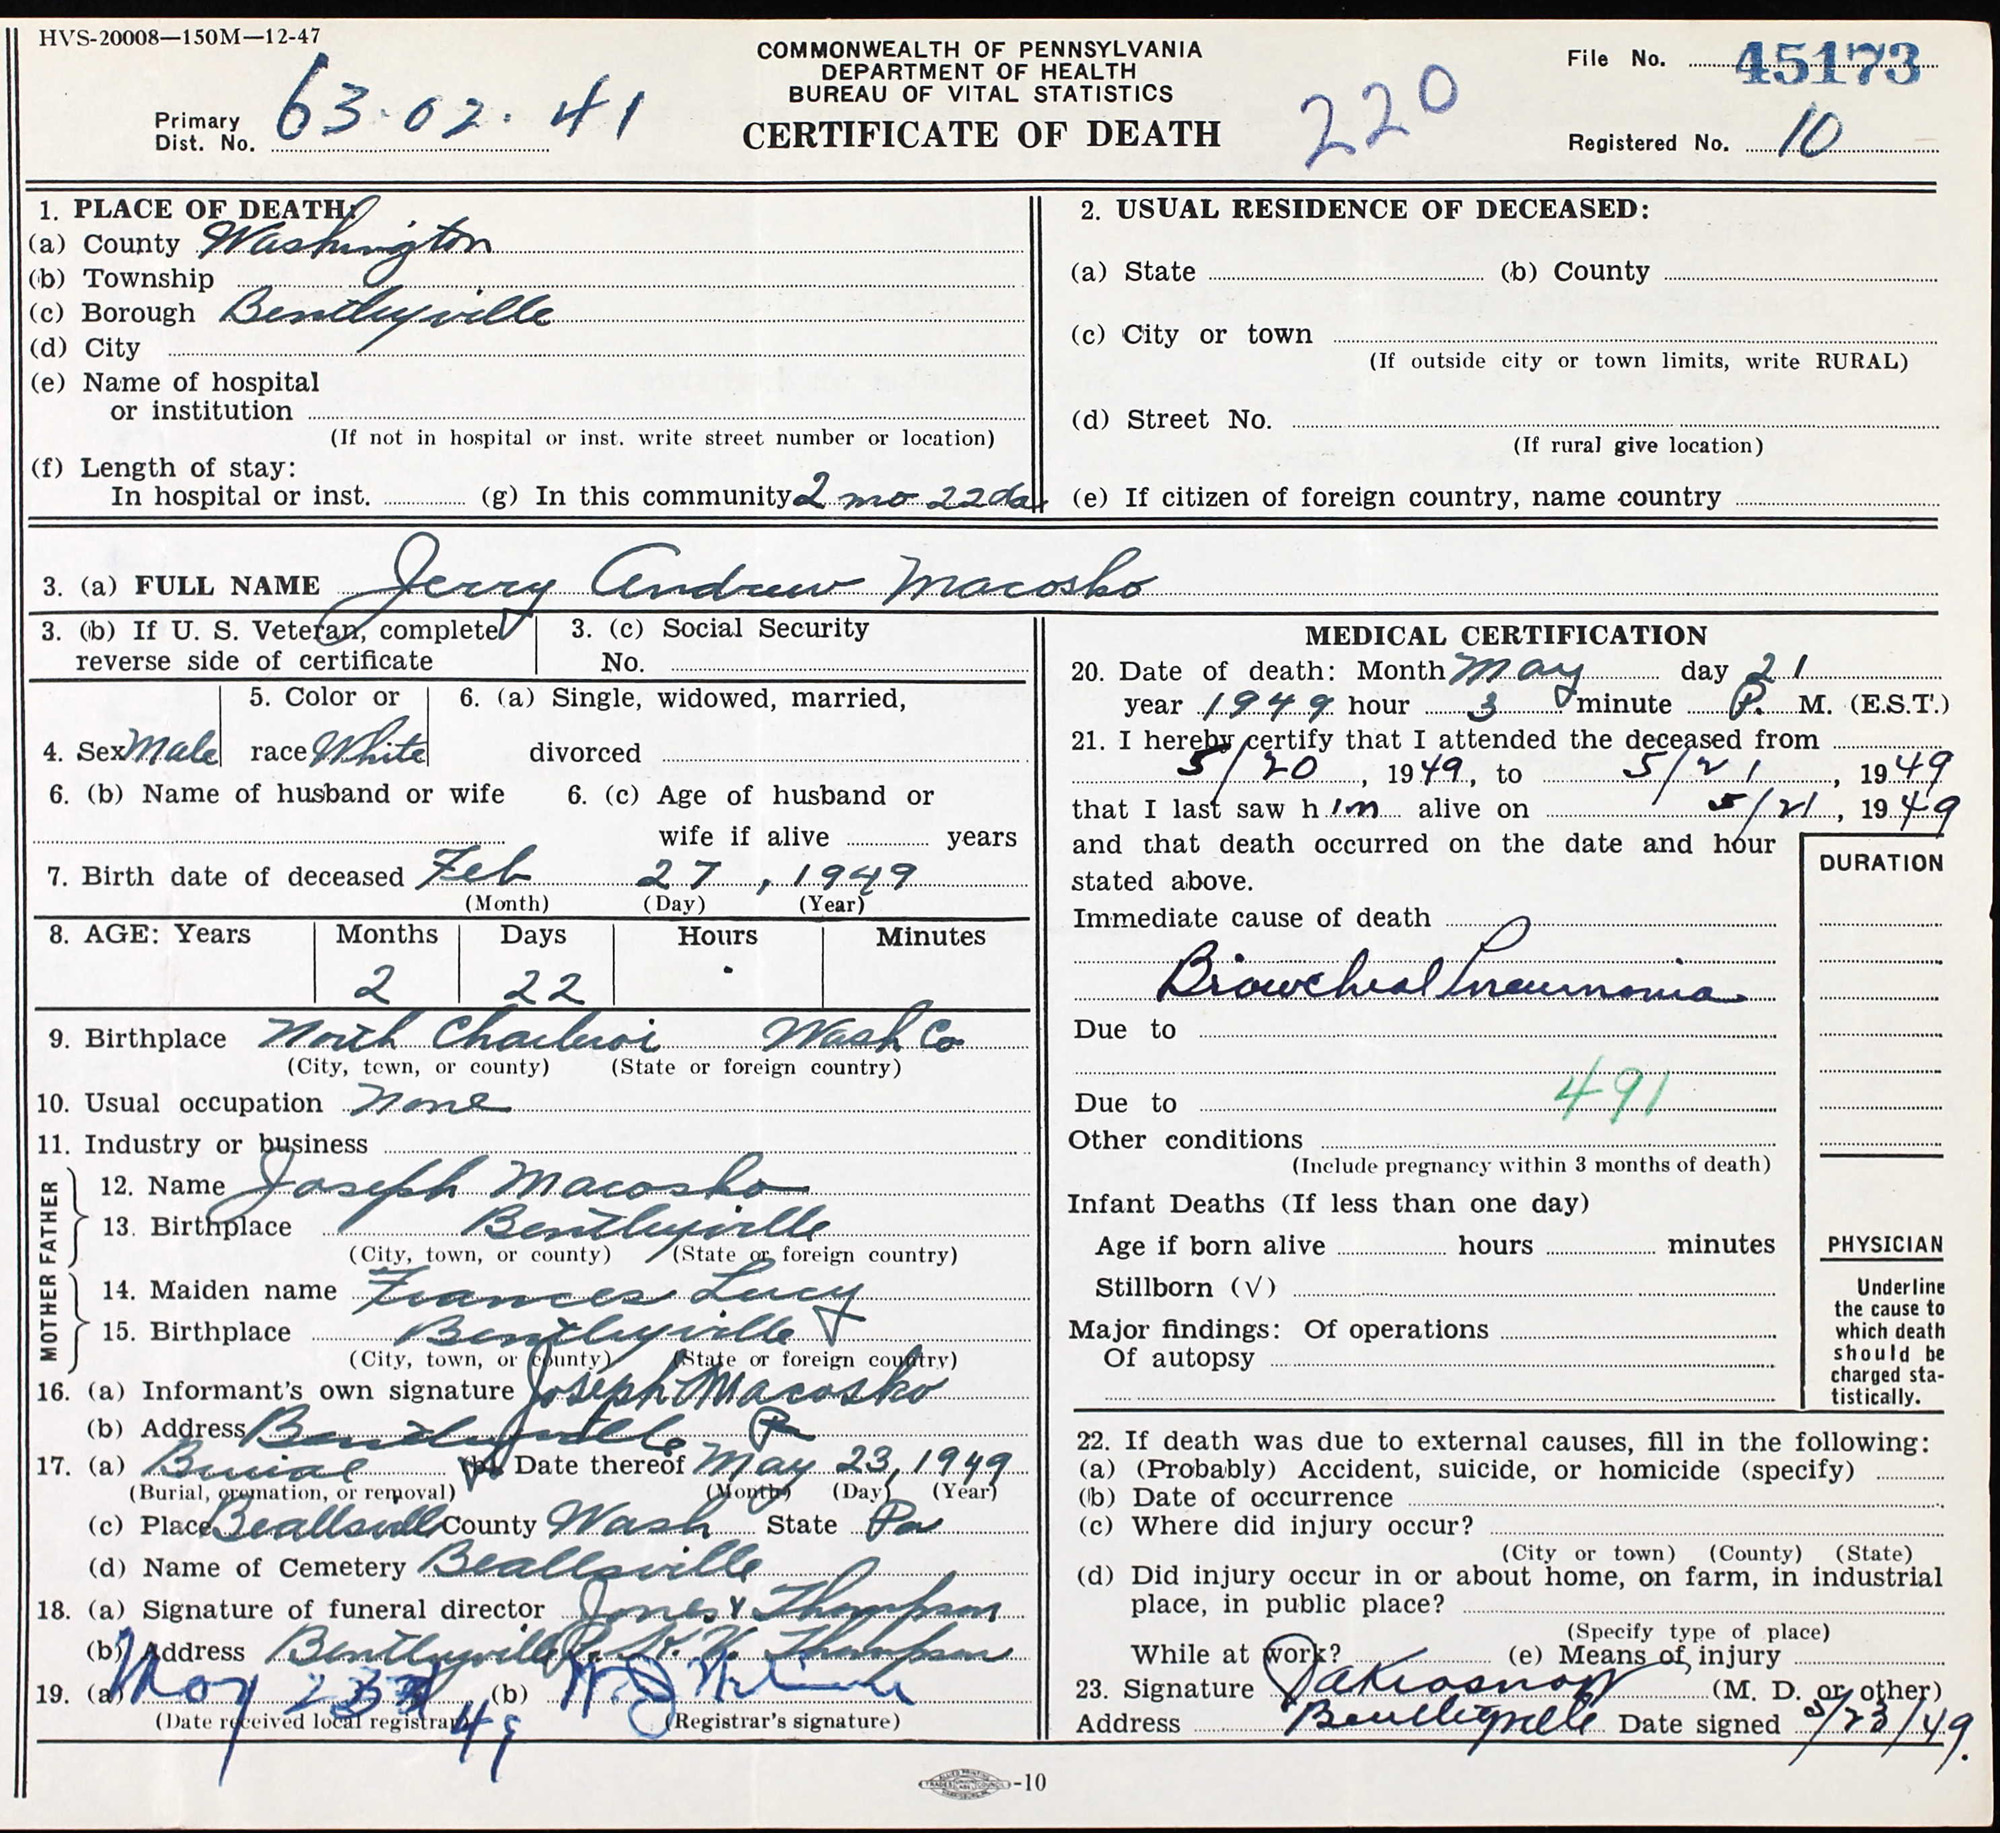 HVS-20008—150M—12-47
COMMONWEALTH OF PENNSYLVANIA
DEPARTMENT OF HEALTH
BUREAU OF VITAL STATISTICS
CERTIFICATE OF DEATH
Primary Dist. No. 63.02.41
220
File No. 45173
Registered No. 10
1. PLACE OF DEATH:
(a) County Washington
(b) Township
(c) Borough Bentleyville
(d) City
(e) Name of hospital
or institution
(If not in hospital or inst. write street number or location)
(f) Length of stay:
In hospital or inst. (g) In this community 2 mo 22 da
2. USUAL RESIDENCE OF DECEASED:
(a) State (b) County
(c) City or town
(If outside city or town limits, write RURAL)
(d) Street No.
(If rural give location)
(e) If citizen of foreign country, name country
3. (a) FULL NAME Jerry Andrew Macosko
3. (b) If U. S. Veteran, complete
reverse side of certificate
3. (c) Social Security
No.
4. Sex Male
5. Color or
race White
6. (a) Single, widowed, married,
divorced
6. (b) Name of husband or wife
6. (c) Age of husband or
wife if alive years
7. Birth date of deceased Feb 27, 1949
(Month) (Day) (Year)
8. AGE: Years Months Days Hours Minutes
2 22
9. Birthplace North Charleroi Wash Co
(City, town, or county) (State or foreign country)
10. Usual occupation None
11. Industry or business
FATHER
12. Name Joseph Macosko
13. Birthplace Bentleyville
(City, town, or county) (State or foreign country)
MOTHER
14. Maiden name Frances Lucy
15. Birthplace Bentleyville
(City, town, or county) (State or foreign country)
16. (a) Informant's own signature Joseph Macosko
(b) Address Bentleyville Pa
17. (a) Burial (b) Date thereof May 23, 1949
(Burial, cremation, or removal) (Month) (Day) (Year)
(c) Place Beallsville County Wash State Pa
(d) Name of Cemetery Beallsville
18. (a) Signature of funeral director Jones & Thompson
(b) Address Bentleyville Thompson
19. (a) May 23 49 (b)
(Date received local registrar) (Registrar's signature)
MEDICAL CERTIFICATION
20. Date of death: Month May day 21
year 1949 hour 3 minute P. M. (E.S.T.)
21. I hereby certify that I attended the deceased from
5/20, 1949, to 5/21, 1949
that I last saw him alive on 5/21, 1949
and that death occurred on the date and hour
stated above.
DURATION
Immediate cause of death
Broncheal Pneumonia
Due to
491
Due to
Other conditions
(Include pregnancy within 3 months of death)
Infant Deaths (If less than one day)
Age if born alive hours minutes
Stillborn (√)
Major findings: Of operations
Of autopsy
PHYSICIAN
Underline
the cause to
which death
should be
charged sta-
tistically.
22. If death was due to external causes, fill in the following:
(a) (Probably) Accident, suicide, or homicide (specify)
(b) Date of occurrence
(c) Where did injury occur?
(City or town) (County) (State)
(d) Did injury occur in or about home, on farm, in industrial
place, in public place?
(Specify type of place)
While at work? (e) Means of injury
23. Signature (M. D. or other)
Address Bentleyville Date signed 5/23/49.
-10